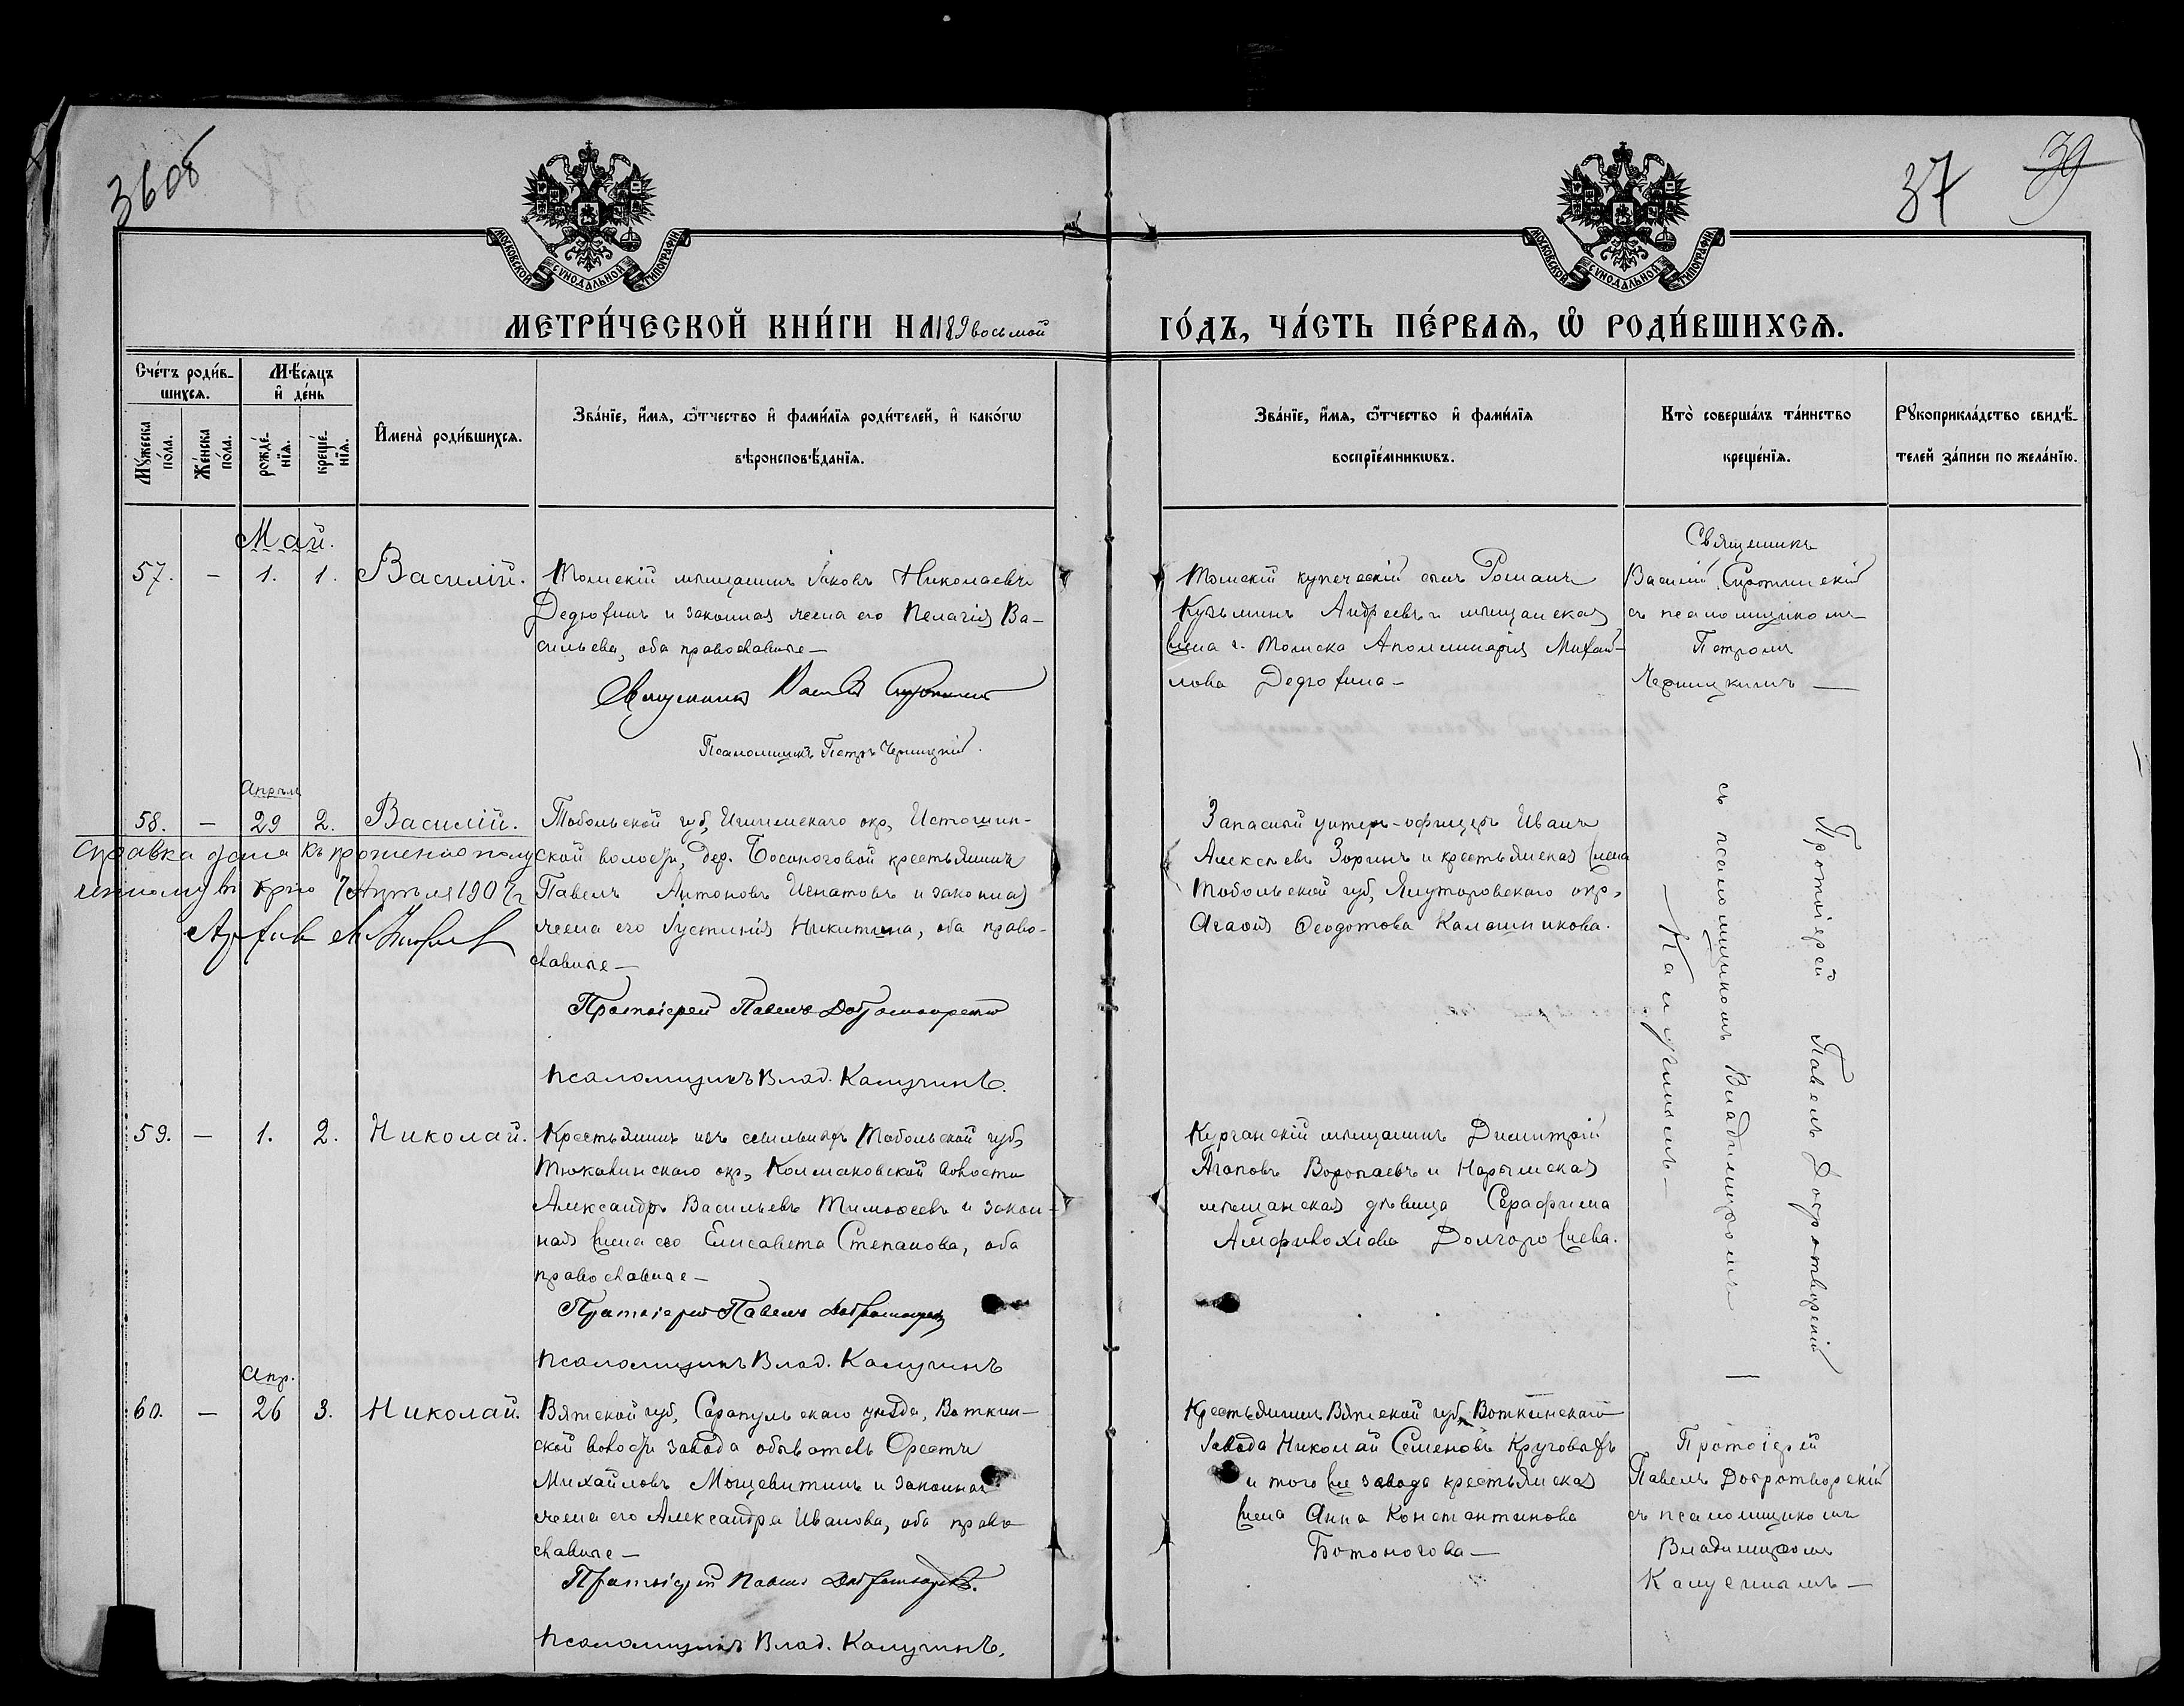 36об
37
39
МОСКОВСКОЙ СѴНОДАЛЬНОЙ ТИПОГРАФІИ
МОСКОВСКОЙ СѴНОДАЛЬНОЙ ТИПОГРАФІИ
МЕТРИ́ЧЕСКОЙ КНИ́ГИ НА 189восьмой ГО́ДЪ, ЧА́СТЬ ПЕ́РВАЯ, Ѡ РОДИ́ВШИХСЯ.
Сче́тъ роди́в-
шихся.
Му́жеска по́ла.
Же́нска по́ла.
Мѣ́сяцъ
и де́нь
рожде́-
нїя.
креще́-
нїя.
Имена̀ роди́вшихся.
Зва́нїе, и́мя, ѻ́тчество и фами́лїя роди́телей, и како́гѡ
вѣроисповѣ́данїя.
Зва́нїе, и́мя, ѻ́тчество и фами́лїя
воспрїе́мникѡвъ.
Кто̀ соверша́лъ та́инство
креще́нїя.
Рꙋкоприкла́дство свидѣ́-
телей за́писи по жела́нїю.
Май.
57. — 1. 1. Василій.
Томскій мѣщанинъ Іаковъ Николаевъ
Дедюхинъ и законная жена его Пелагія Ва-
сильева, оба православные —
Священникъ Василій
Псаломщикъ Петръ Черницкій.
Томскій купеческій сынъ Романъ
Кузьминъ Андреевъ и мѣщанская
жена г. Томска Аполлинарія Михай-
лова Дедюхина —
Священникъ
Василій Сиротинскій
съ псаломщикомъ
Петромъ
Черницкимъ —
Апрѣля
58. — 29 2. Василій.
Тобольской губ, Ишимскаго окр, Истошин-
ской волости, дер. Босоноговой крестьянинъ
Павелъ Антоновъ Игнатовъ и законная
жена его Іустинія Никитина, оба право-
славные —
Протоіерей Павелъ Добротворскій
Псаломщикъ Влад. Калугинъ.
Справка дана къ прошенію
Апрѣля
Запасный унтеръ-офицеръ Иванъ
Алексѣевъ Зоринъ и крестьянская жена
Тобольской губ, Ялуторовскаго окр,
Агаѳія Ѳеодотова Калашникова.
Протоіерей Павелъ Добротворскій
съ псаломщикомъ Владиміромъ
— Калугинымъ —
59. — 1. 2. Николай.
Крестьянинъ изъ ссыльныхъ Тобольской губ,
Тюкалинскаго окр, Колмаковской волости
Александръ Васильевъ Тимоѳеевъ и закон-
ная жена его Елисавета Степанова, оба
православные —
Протоіерей Павелъ Добротворскій
Псаломщикъ Влад. Калугинъ
Курганскій мѣщанинъ Димитрій
Агаповъ Воропаевъ и Нарымская
мѣщанская дѣвица Серафима
Амфилохіева Долгорожева.
Апр.
60. — 26 3. Николай.
Вятской губ, Сарапульскаго уѣзда, Воткин-
ской волости завода обыватель Орестъ
Михайловъ Мощевитинъ и законная
жена его Александра Иванова, оба право
славные —
Протоіерей Павелъ Добротворскій.
Псаломщикъ Влад. Калугинъ.
Крестьянинъ Вятской губ, Воткинскаго
завода Николай Семеновъ Круговыхъ
и того же завода крестьянская
жена Анна Константинова
Ботоногова —
Протоіерей
Павелъ Добротворскій
съ псаломщикомъ
Владиміромъ
Калугинымъ —